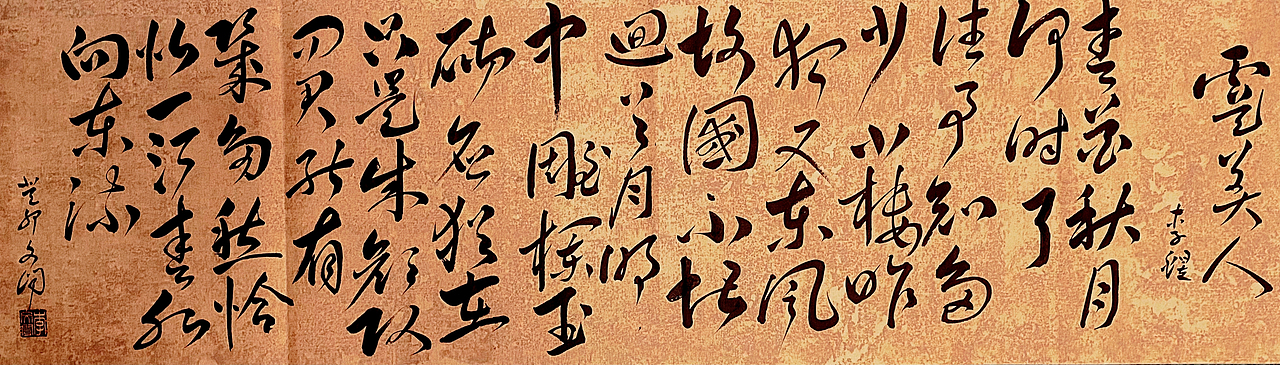 虞美人
李煜
春花秋月
何时了
往事知多
少小楼昨
夜又东风
故國不堪
迴首月明
中雕栏玉
砌应犹在
只是朱颜改
问君能有
幾多愁恰
似一江春水
向东流
癸卯文